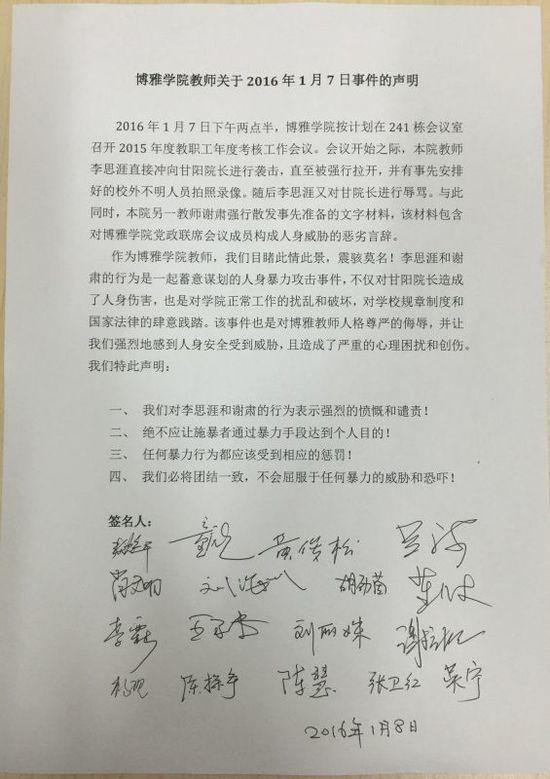 博雅学院教师关于 2016 年 1 月 7 日事件的声明
2016 年 1 月 7 日下午两点半，博雅学院按计划在 241 栋会议室
召开 2015 年度教职工年度考核工作会议。会议开始之际，本院教师
李思涯直接冲向甘阳院长进行袭击，直至被强行拉开，并有事先安排
好的校外不明人员拍照录像。随后李思涯又对甘院长进行辱骂。与此
同时，本院另一教师谢肃强行散发事先准备的文字材料，该材料包含
对博雅学院党政联席会议成员构成人身威胁的恶劣言辞。
作为博雅学院教师，我们目睹此情此景，震骇莫名！李思涯和谢
肃的行为是一起蓄意谋划的人身暴力攻击事件，不仅对甘阳院长造成
了人身伤害，也是对学院正常工作的扰乱和破坏，对学校规章制度和
国家法律的肆意践踏。该事件也是对博雅教师人格尊严的侮辱，并让
我们强烈地感到人身安全受到威胁，且造成了严重的心理困扰和创伤。
我们特此声明：
一、 我们对李思涯和谢肃的行为表示强烈的愤慨和谴责！
二、 绝不应让施暴者通过暴力手段达到个人目的！
三、 任何暴力行为都应该受到相应的惩罚！
四、 我们必将团结一致，不会屈服于任何暴力的威胁和恐吓！
签名人：
黄俊松
肖文明 胡劲茵 董波
李霖 刘丽姝
杨砚 陈探宇 陈慧 张卫红 吴宁
2016年1月8日